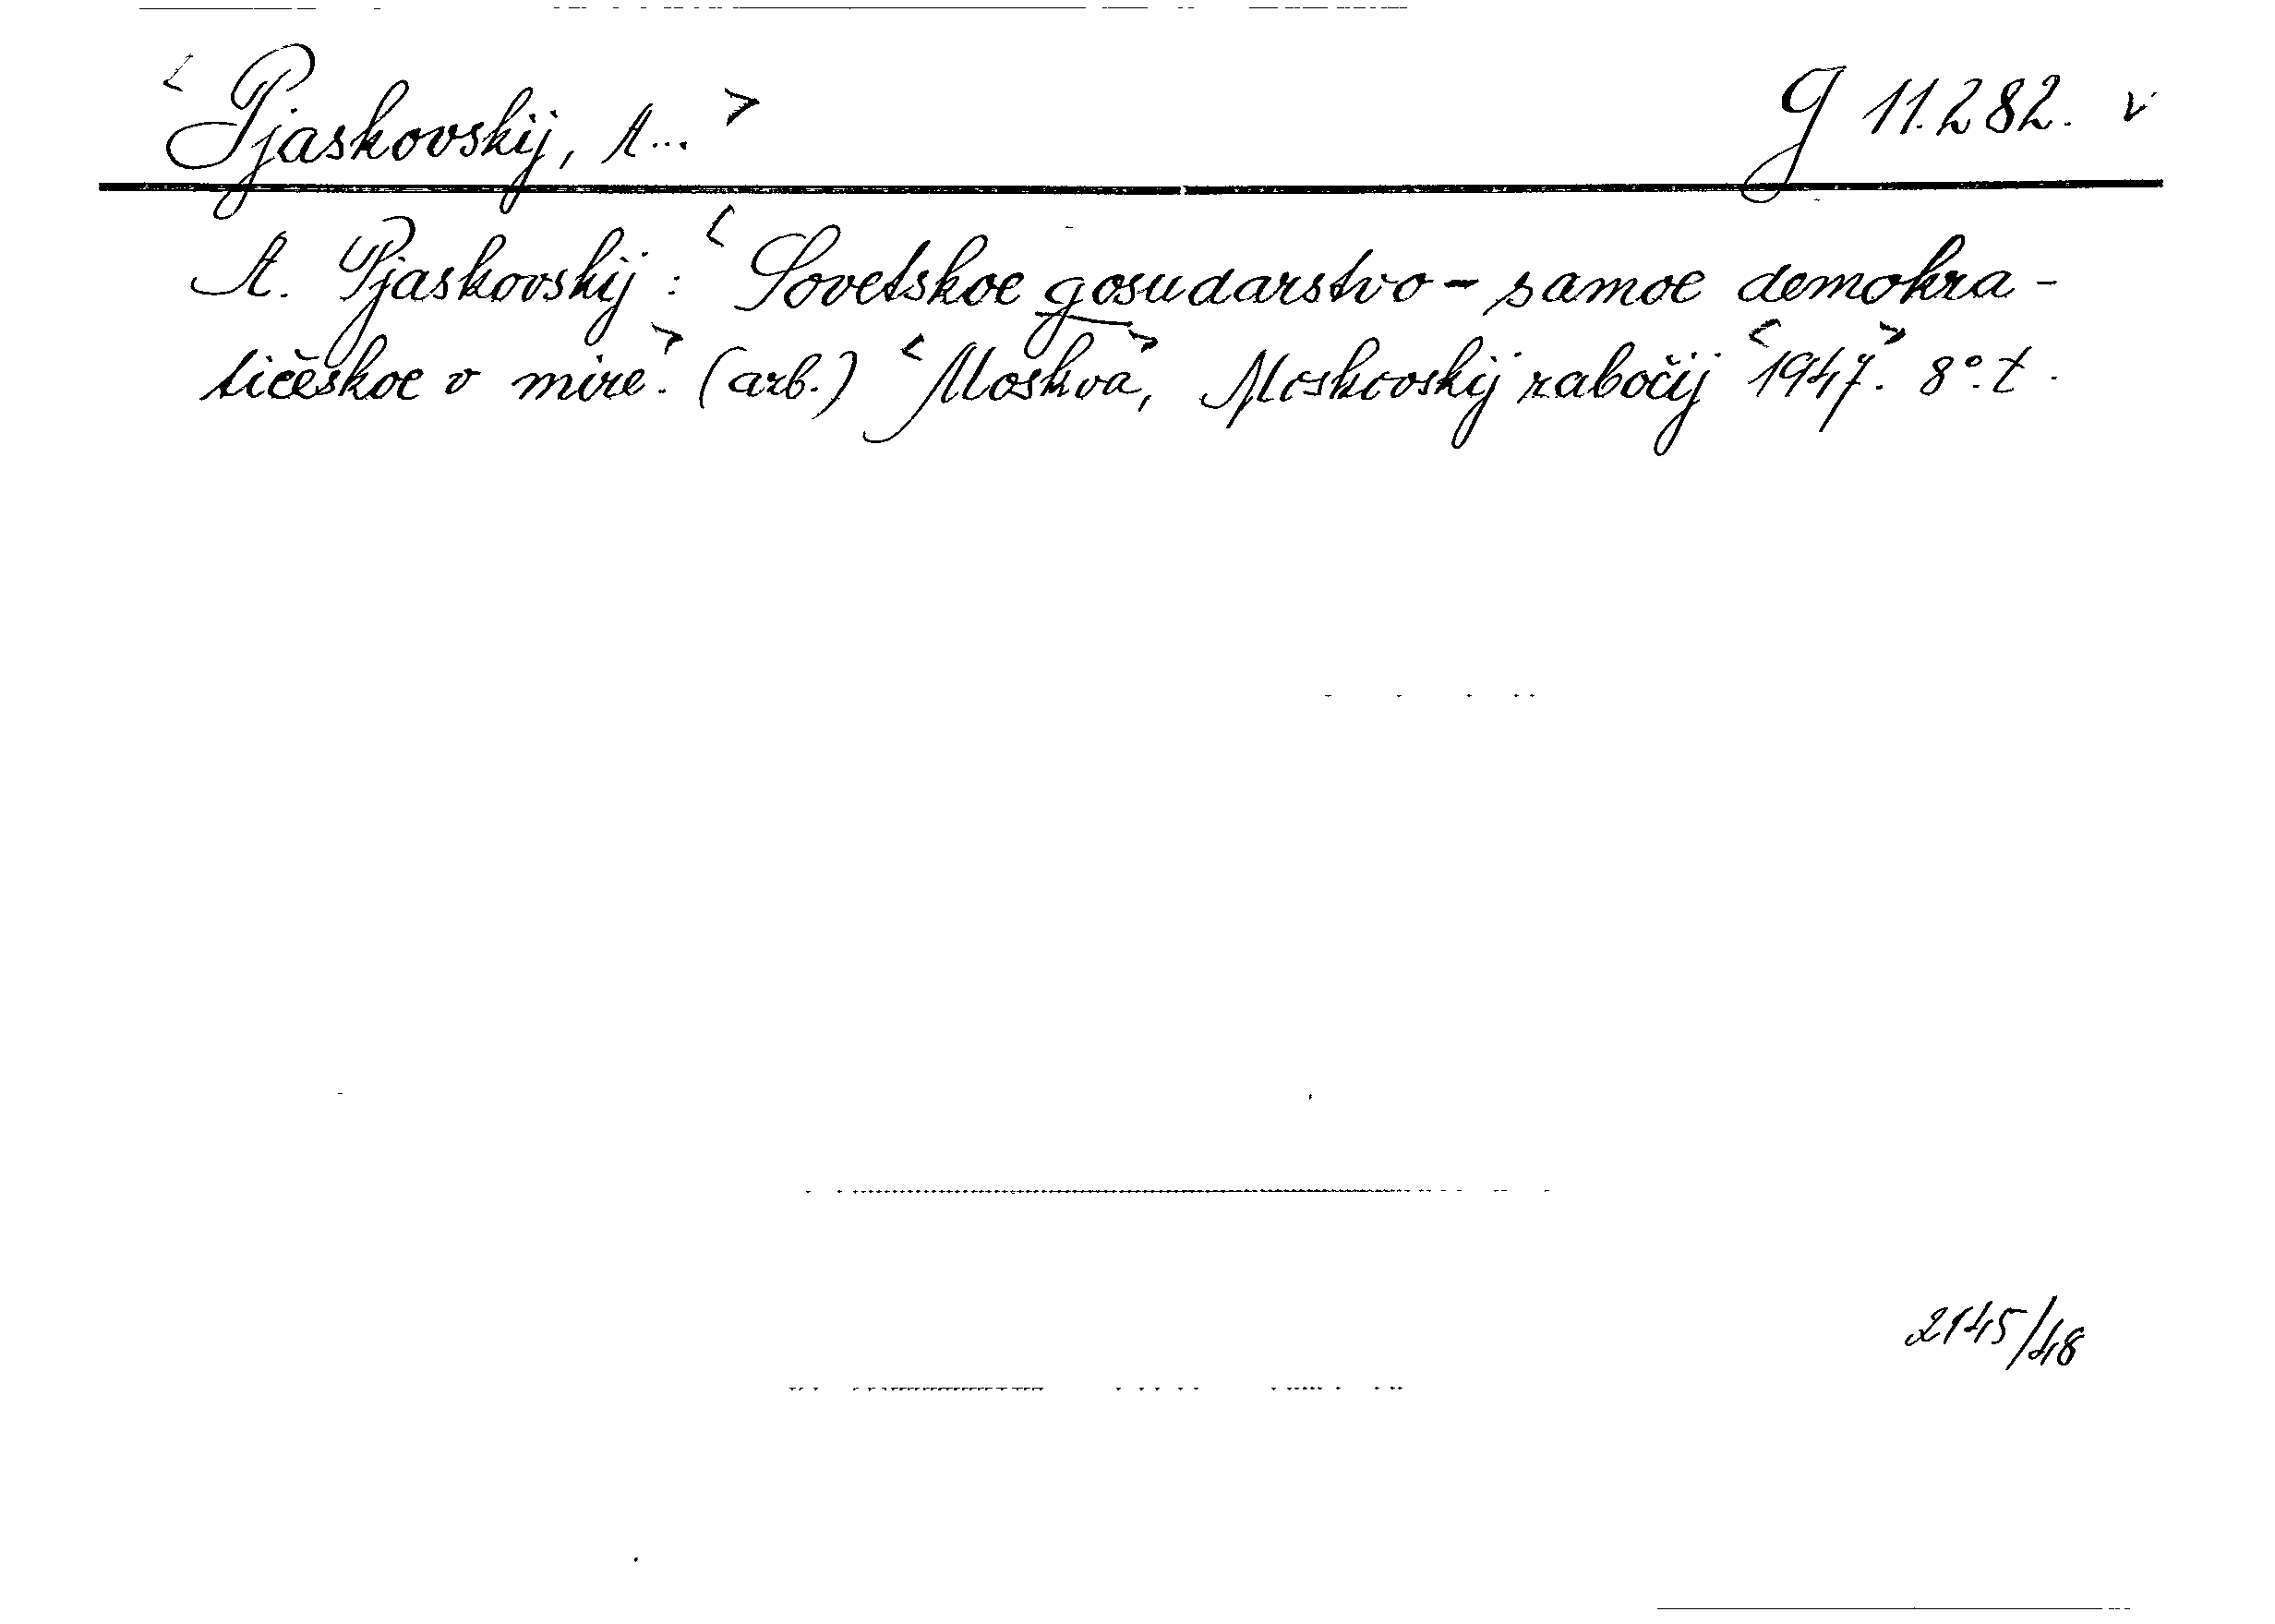 <Pjaskovskij, A...> G 11.282. v
A. Pjaskovskij: <Sovetskoe gosudarstvo - samoe demokra-
tičeskoe v mire.> (arb.) <Moskva>, Moskovskij rabočij <1947>. 8° t.
2145/48